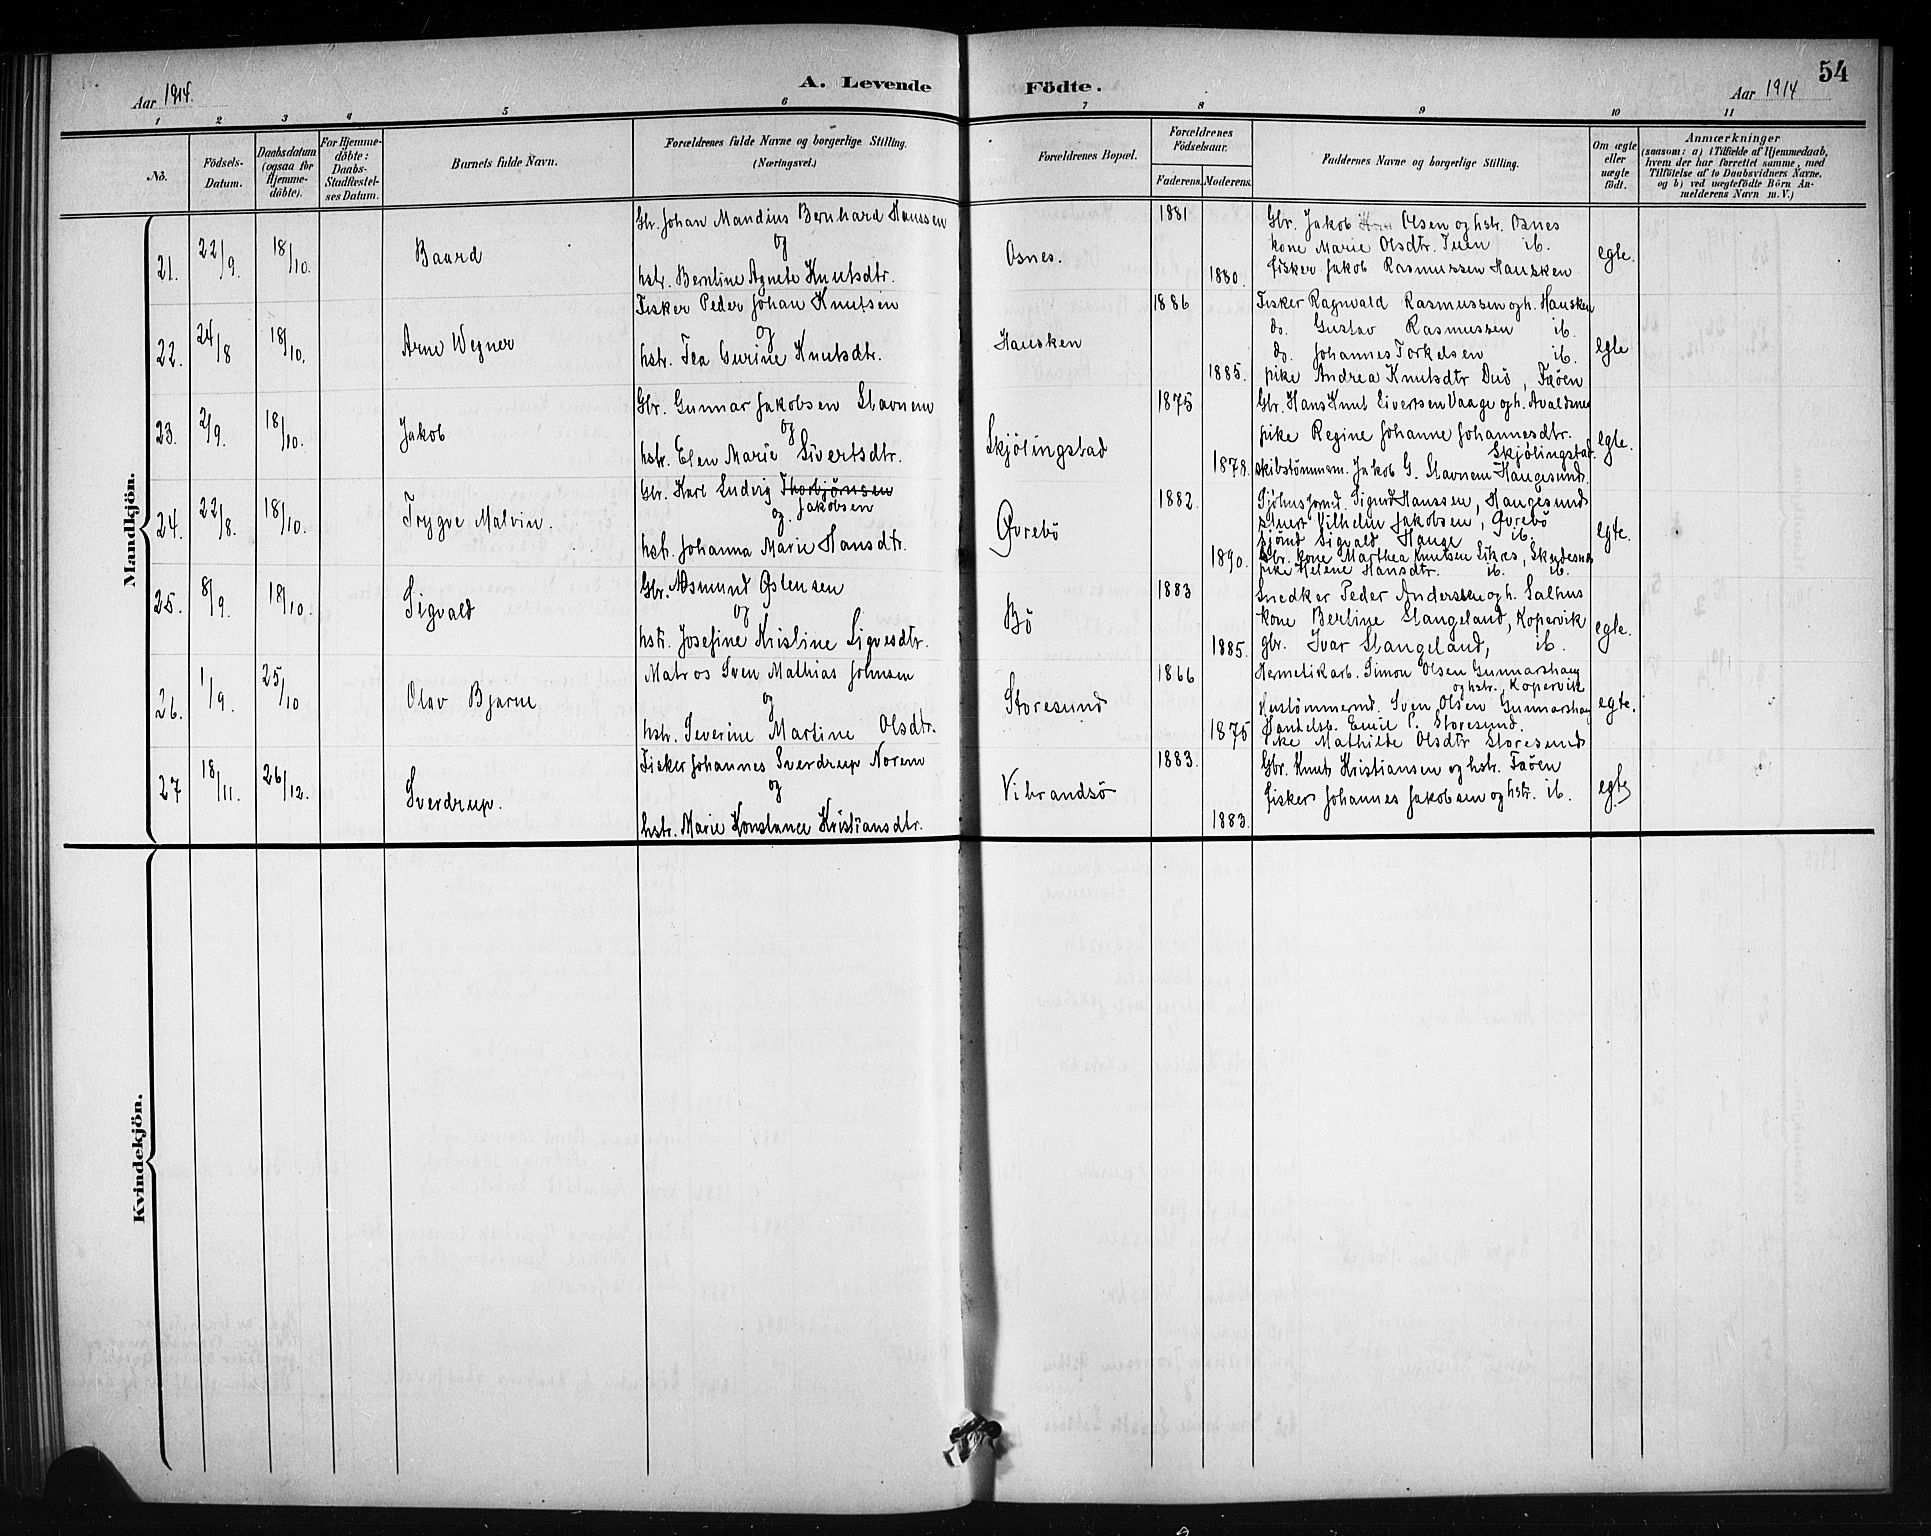 54
Aar 1914.
A. Levende Födte.
Aar 1914
1 2 3 4 5 6 7 8 9 10 11
No.
Födsels-Datum.
Daabsdatum (ogsaa for Hjemme-döbte).
For Hjemme-döbte: Daabs-Stadfæstel-ses Datum.
Barnets fulde Navn.
Forældrenes fulde Navne og borgerlige Stilling. (Næringsvei.)
Forældrenes Bopæl.
Forældrenes Födselsaar.
Faderens. Moderens.
Faddernes Navne og borgerlige Stilling.
Om ægte eller uægte födt.
Anmærkninger
(saasom: a) i Tilfælde af Hjemmedaab, hvem der har forrettet samme, med Tilföielse af to Daabsvidners Navne, og b) ved uægtefödte Börn An-melderens Navn m. V.)
Mandkjön.
21. 22/9. 18/10. Baard
Gbr. Johan Mandius Bernhard Hanssen
og
hstr. Berntine Agnete Knutsdtr.
Osnes. 1881 1880.
Gbr. Jakob Olsen og hstr. Osnes
kone Marie Olsdtr. Tuen ib.
fisker Jakob Rasmussen Hausken
egte.
22. 24/8 18/10. Arne Wegner
Fisker Peder Johan Knutsen
og
hstr. Tea Gurine Knutsdtr.
Hausken 1886 1885.
Fisker Ragnvald Rasmussen og h. Hausken
do. Gustav Rasmussen ib.
do. Johannes Torkelsen ib.
pike Andrea Knutsdtr Duö, Faöen
egte
23. 2/9. 18/10. Jakob
Gbr. Gunnar Jakobsen Stavnem
og
hstr. Elen Marie Sivertsdtr.
Skjölingstad 1875 1878.
Gbr. Hans Knut Sivertsen Vaage og h. Avaldsnes
pike Regine Johanne Johannesdtr.
Skjölingstad.
skibstömmerm. Jakob G. Stavnem Haugesund.
egte.
24. 22/8. 18/10. Trygve Malvin.
Gbr. Karl Ludvig Thorbjörnsen
og Jakobsen
hst. Johanna Marie Hansdtr.
Øvrebö 1882 1890.
Sigurd Hanssen, Haugesund
Vilhelm Jakobsen, Øvrebö
sjömd Sigvald Hauge ib.
Gbr. kone Marthea Knutsen Liknes, Skudesnes
pike Helene Hansdtr. ib. ib.
egte.
25. 8/9. 18/10. Sigvald
Gbr. Asmund Østensen
og
hstr. Josefine Kristine Sigvesdtr.
Bö 1883 1885.
Snedker Peder Andersen og h. Salhus
kone Bertine Stangeland, Kopervik
gbr. Ivar Stangeland, ib.
egte.
26. 1/9. 25/10 Olav Bjarne
Matros Sven Mathias Johnsen
og
hstr. Severine Martine Olsdtr.
Storesund 1866 1875
Hermetikarb. Simon Olsen Gunnarshaug
og hstr., Kopervik
Hustömmermd. Sven Olsen Gunnarshaug
Handelsb. Emil C. Storesund.
Pike Mathilde Olsdtr Storesund
egte.
27 18/11. 26/12. Sverdrup.
Fisker Johannes Sverdrup Norem
og
hstr. Marie Konstance Kristiansdtr.
Vibrandsö 1883. 1883.
Gbr. Knut Kristiansen og hstr. Faöen
fisker Johannes Jakobsen og hstr. ib.
egte
Kvindekjön.